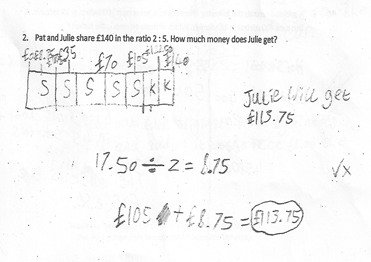 2. Pat and Julie share £140 in the ratio 2 : 5. How much money does Julie get?
£35 £70 £105 £140
S S S S S K K
Julie will get
£113.75
17.50 ÷ 2 = 8.75
√x
£105 + £8.75 = £113.75